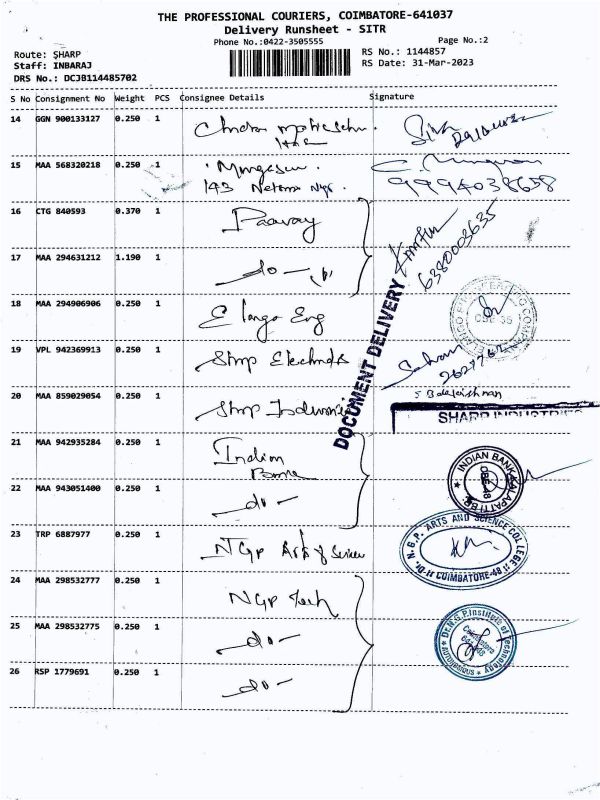 THE PROFESSIONAL COURIERS, COIMBATORE-641037
Delivery Runsheet - SITR
Phone No.:0422-3505555
Page No.:2
Route: SHARP
Staff: INBARAJ
DRS No.: DCJB114485702
RS No.: 1144857
RS Date: 31-Mar-2023
S No Consignment No Weight PCS Consignee Details Signature
14 GGN 900133127 0.250 1
15 MAA 568320218 0.250 1 Murugesan
143 Nehru Ngr. 9994038658
16 CTG 840593 0.370 1 Paavay
6380003635
17 MAA 294631212 1.190 1 -do-
DOCUMENT DELIVERY
18 MAA 294906906 0.250 1 Elango Eng
19 VPL 942369913 0.250 1 Sharp Electrods
20 MAA 859029054 0.250 1 Sharp Industries
S Balakrishnan
SHARP INDUSTRIES
21 MAA 942935284 0.250 1 Indian
Bank
INDIAN BANK KALAPATTI
22 MAA 943051400 0.250 1 -do-
23 TRP 6887977 0.250 1 NGP Arts & Science
Dr. N.G.P. ARTS AND SCIENCE COLLEGE
COIMBATORE-48
24 MAA 298532777 0.250 1 NGP Tech
25 MAA 298532775 0.250 1 -do-
Dr.N.G.P.Institute of Technology
Coimbatore
641048
AUTONOMOUS
26 RSP 1779691 0.250 1 -do-